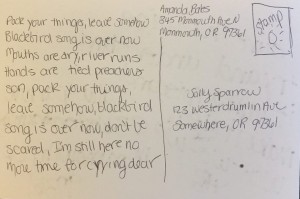 Pack your things, leave somehow
Blackbird song is over now
Mouths are dry, river runs
Hands are tied preachers
son, pack your things,
leave somehow, Blackbird
song is over now, don't be
scared, I'm still here no
more time for crying dear
Amanda, Bates
345 Monmouth Ave N
Monmouth, OR 97361
Stamp
Sally Sparrow
123 westerdrumlin Ave
Somewhere, OR 97361